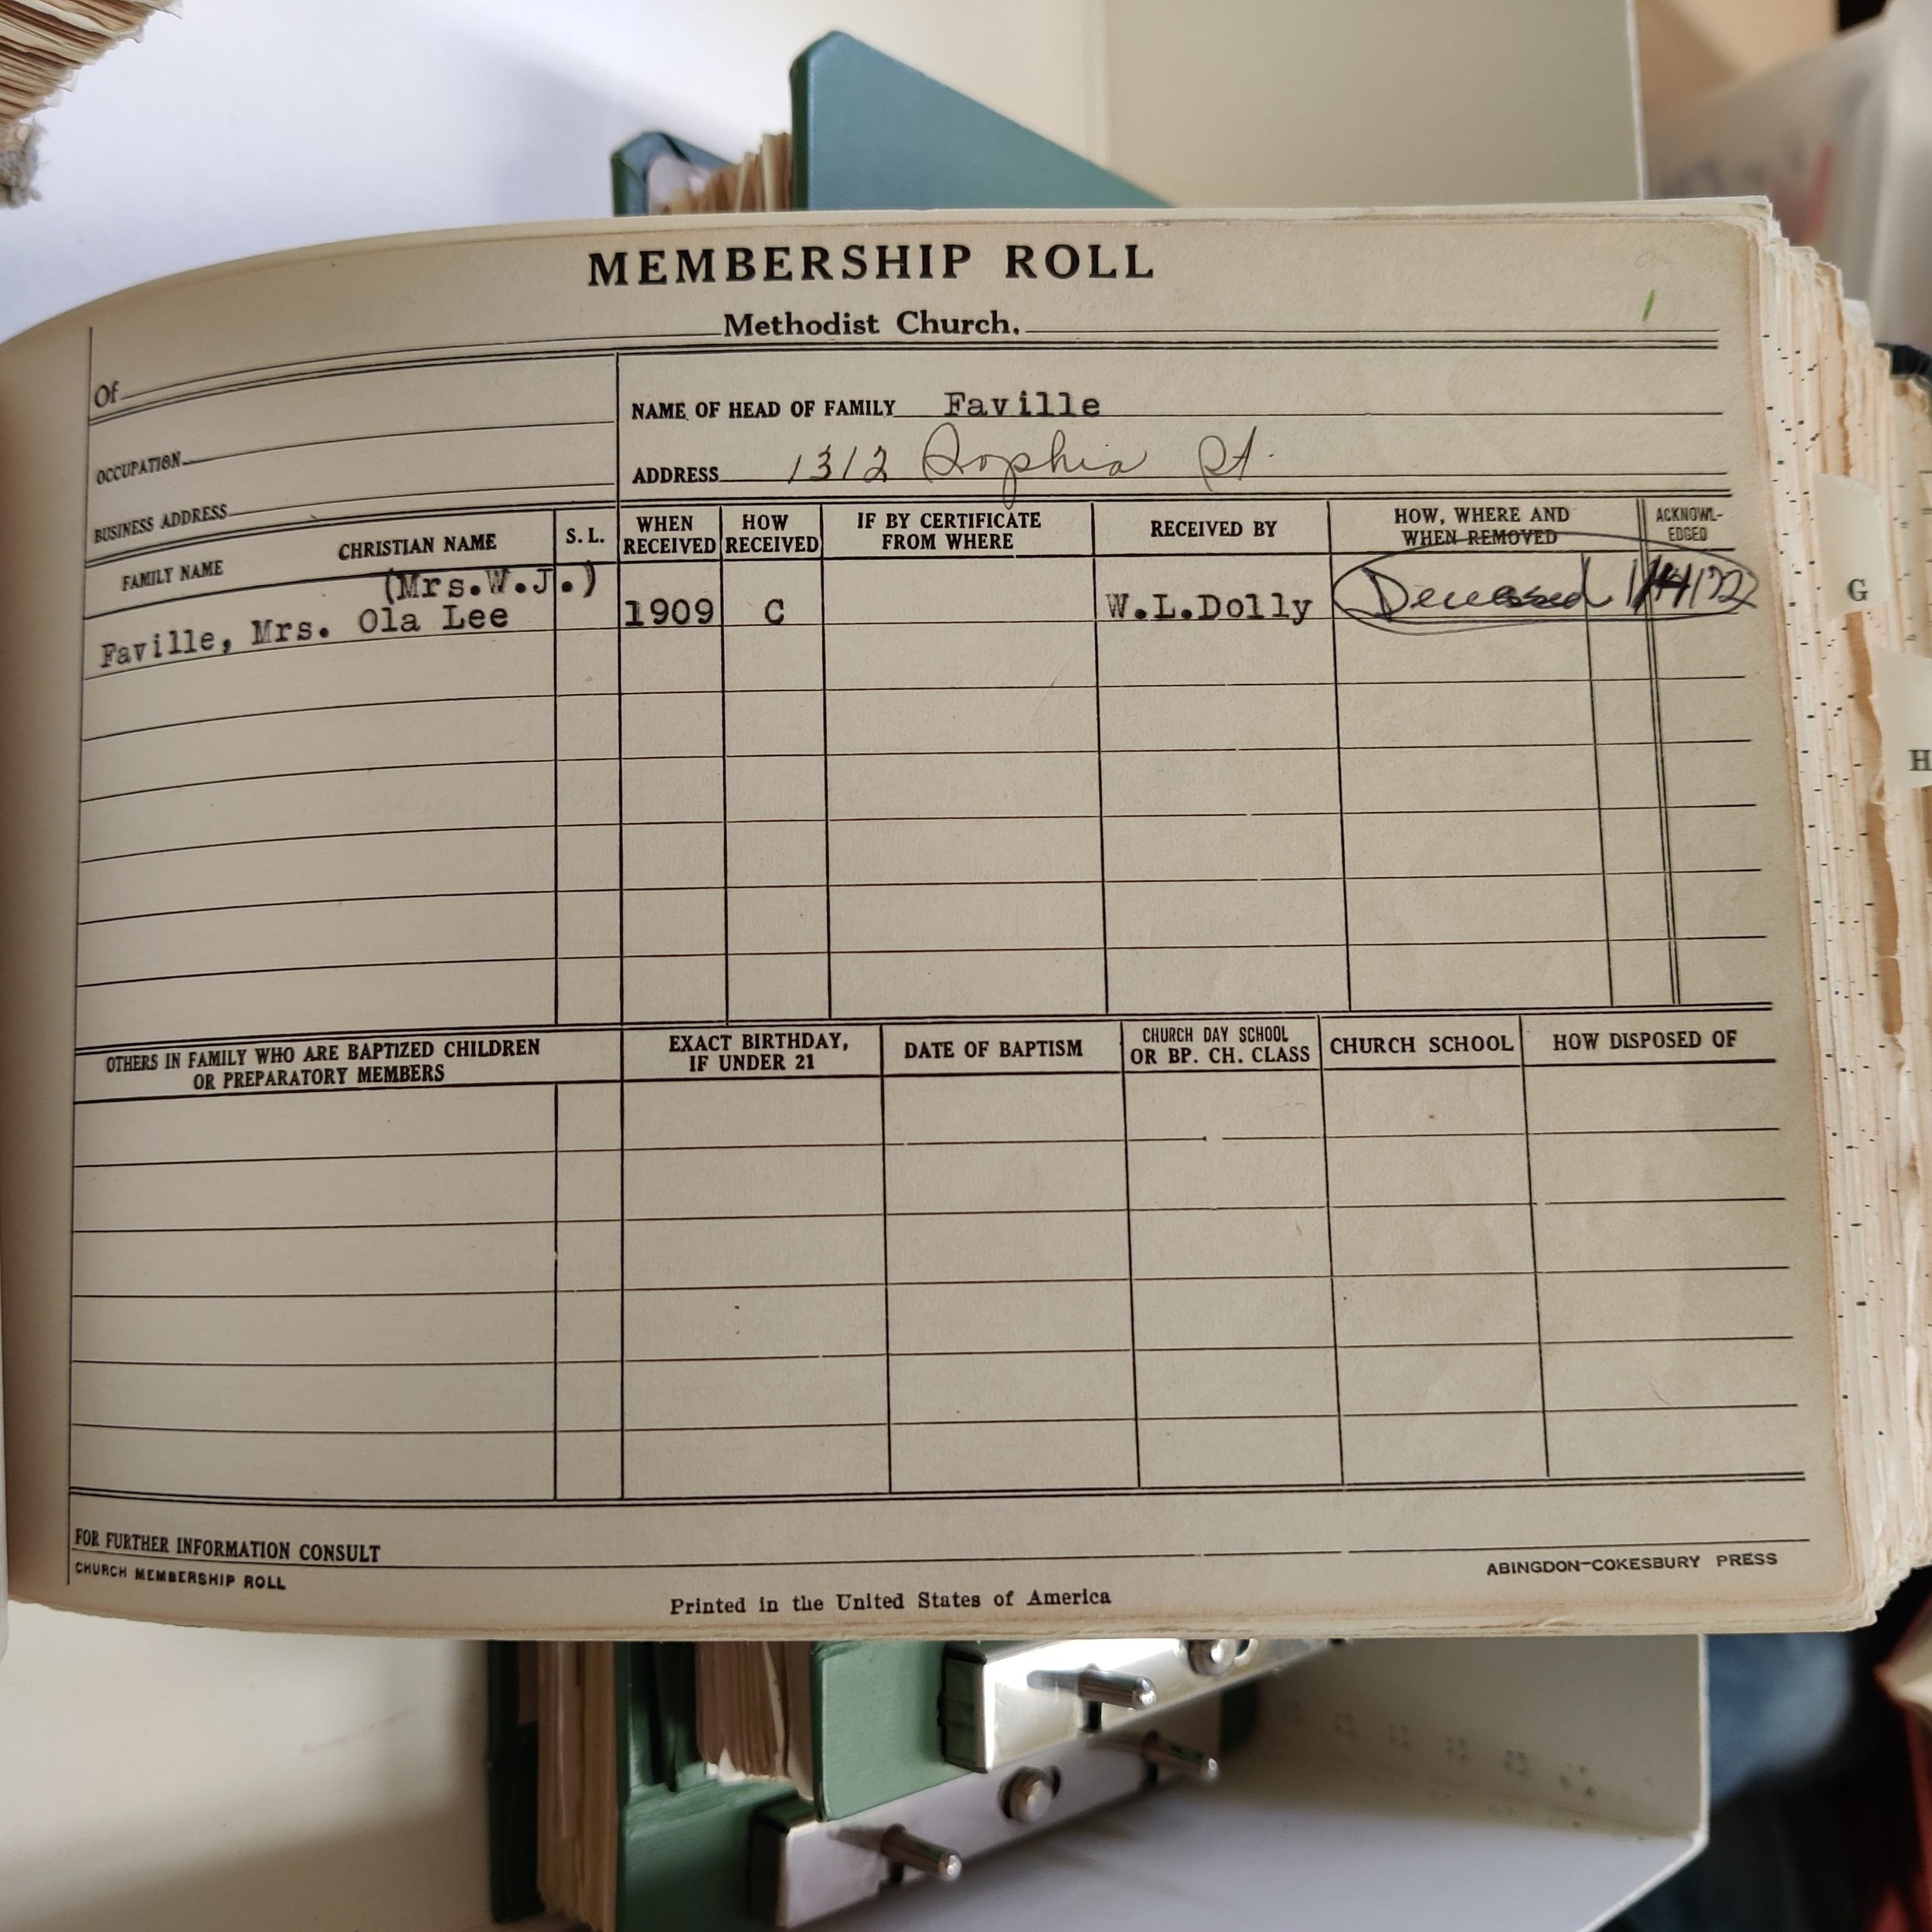 MEMBERSHIP ROLL
Methodist Church.
Of
OCCUPATION
BUSINESS ADDRESS
NAME OF HEAD OF FAMILY Faville
ADDRESS 1312 Sophia St.
FAMILY NAME CHRISTIAN NAME S. L. WHEN RECEIVED HOW RECEIVED IF BY CERTIFICATE FROM WHERE RECEIVED BY HOW, WHERE AND WHEN REMOVED ACKNOWL-EDGED
(Mrs.W.J.)
Faville, Mrs. Ola Lee 1909 C W.L.Dolly Deceased
OTHERS IN FAMILY WHO ARE BAPTIZED CHILDREN OR PREPARATORY MEMBERS EXACT BIRTHDAY, IF UNDER 21 DATE OF BAPTISM CHURCH DAY SCHOOL OR BP. CH. CLASS CHURCH SCHOOL HOW DISPOSED OF
FOR FURTHER INFORMATION CONSULT
CHURCH MEMBERSHIP ROLL
Printed in the United States of America
ABINGDON-COKESBURY PRESS
G
H